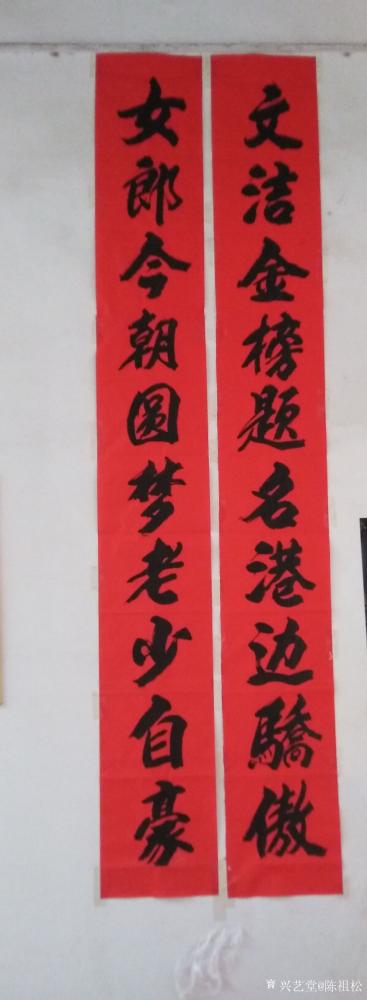 文洁金榜题名港边驕傲
女郎今朝圆梦老少自豪
兴艺堂@陈祖松